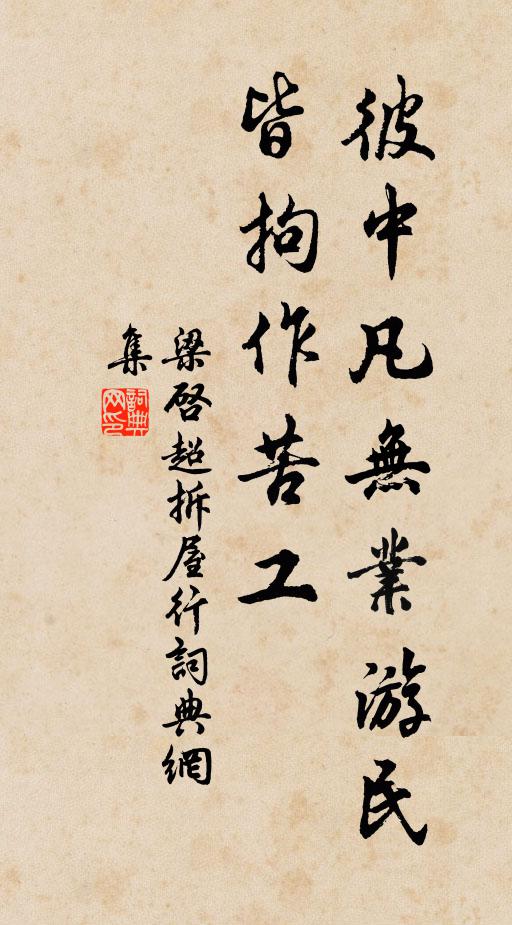 彼中凡無業游民
皆拘作苦工
梁啓超拆屋行詞典網
集
詞典
网印